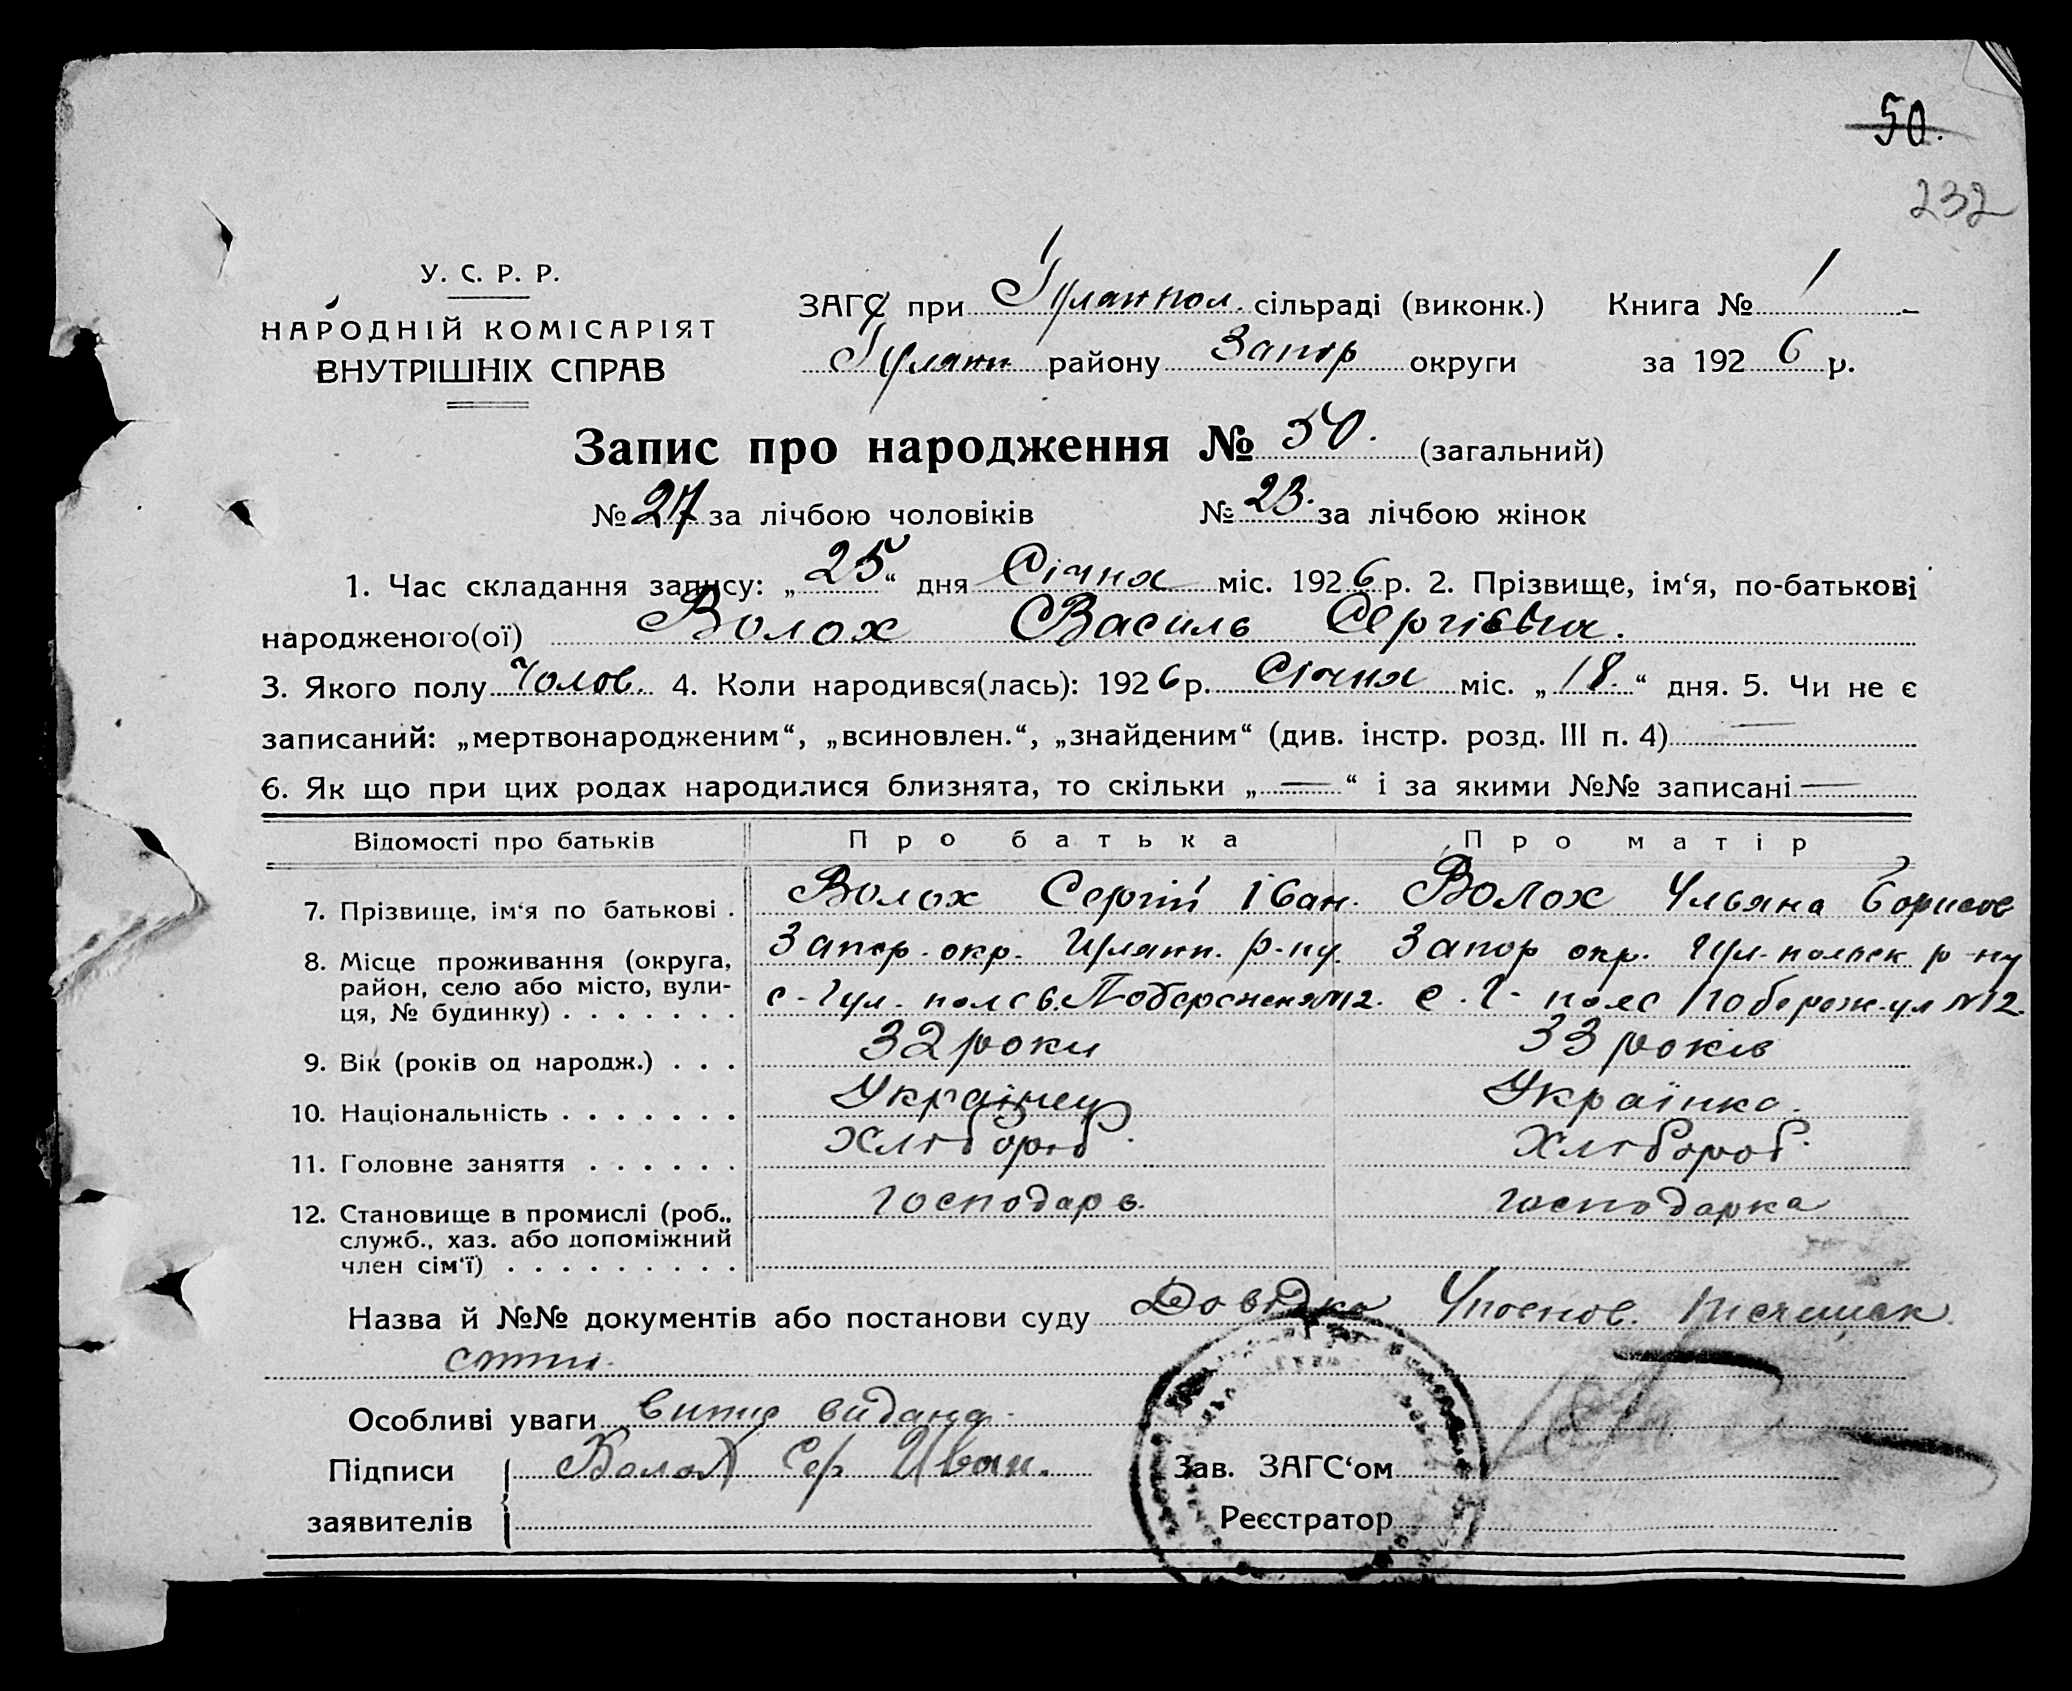 50.
232
У. С. Р. Р.
НАРОДНІЙ КОМІСАРІЯТ
ВНУТРІШНІХ СПРАВ
ЗАГС при Гуляйпол. сільраді (виконк.) Книга № 1
Гуляйп району Запор округи за 1926 р.
Запис про народження № 50. (загальний)
№ 27 за лічбою чоловіків № 23. за лічбою жінок
1. Час складання запису: „25“ дня Січня міс. 1926 р. 2. Прізвище, ім‘я, по-батькові
народженого(ої) Волох Василь Сергієвич.
3. Якого полу Чолов. 4. Коли народився(лась): 1926 р. Січня міс. „18.“ дня. 5. Чи не є
записаний: „мертвонародженим“, „всиновлен.“, „знайденим“ (див. інстр. розд. III п. 4) —
6. Як що при цих родах народилися близнята, то скільки „—“ і за якими №№ записані —
Відомості про батьків Про батька Про матір
7. Прізвище, ім‘я по батькові . Волох Сергій Іван. Волох Ульяна Борисов
8. Місце проживання (округа, район, село або місто, вулиця, № будинку) . . . . . . . Запор. окр. Гуляйп. р-ну. Запор окр. Гул-
с-Гул- №12. с. Г- поле Побереж. ул №12.
9. Вік (років од народж.) . . . 32 роки 33 років
10. Національність . . . . . . Українец Українка.
11. Головне заняття . . . . . . Хлібороб. Хлібороб.
12. Становище в промислі (роб., служб., хаз. або допоміжний член сім‘ї) . . . . . . . . . господарь. господарка
Назва й №№ документів або постанови суду Довідка
Особливі уваги видана
Підписи Волох Сер Иван. Зав. ЗАГС‘ом
заявителів Реєстратор